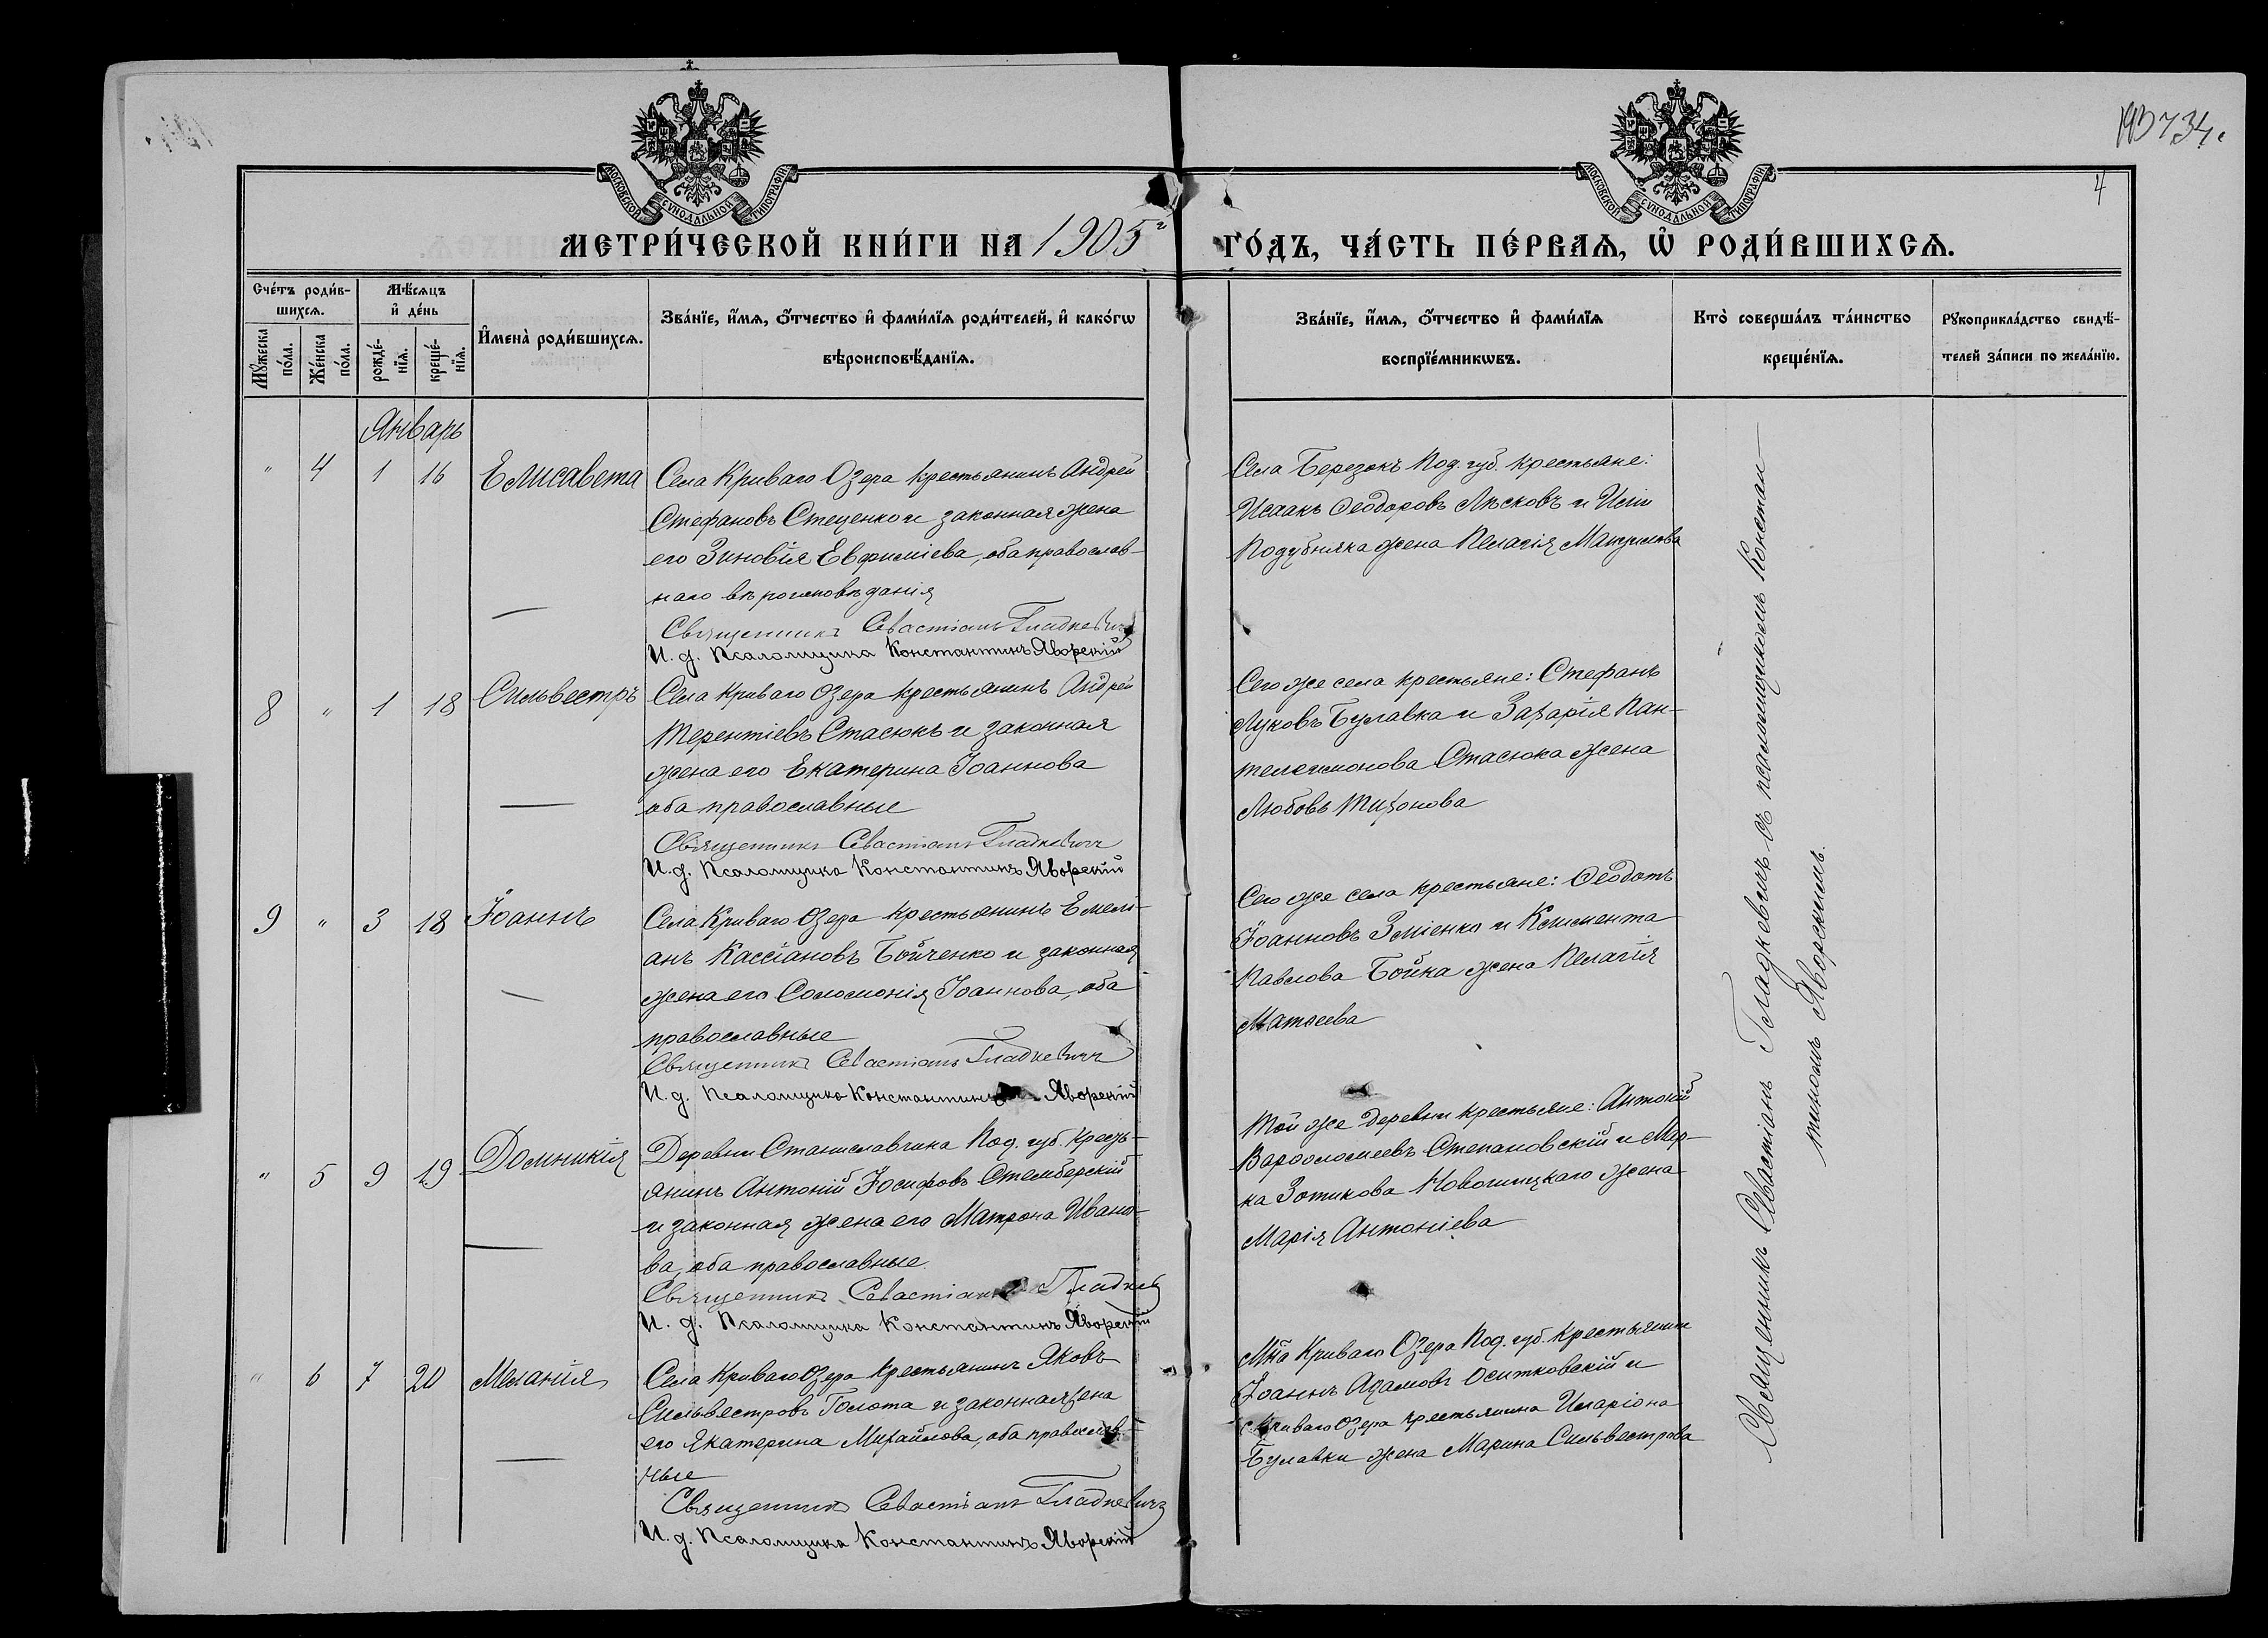 193 734.
4
МОСКОВСКОЙ СѴНОДАЛЬНОЙ ТИПОГРАФІИ
МОСКОВСКОЙ СѴНОДАЛЬНОЙ ТИПОГРАФІИ
МЕТРИ́ЧЕСКОЙ КНИ́ГИ НА 1905 г ГО́ДЪ, ЧА́СТЬ ПЕ́РВАѦ, Ѽ РОДИ́ВШИХСѦ.
Сче́тъ роди́в-
шихсѧ.
Мꙋ́жеска по́ла.
Же́нска по́ла.
Мѣ́сѧцъ
и҆ де́нь
рожде́-
нїѧ.
креще́-
нїѧ.
И҆мена̀ роди́вшихсѧ.
Зва́нїе, и҆́мѧ, ѻ҆́тчество и҆ фами́лїѧ роди́телей, и҆ како́гѡ
вѣроисповѣ́данїѧ.
Зва́нїе, и҆́мѧ, ѻ҆́тчество и҆ фами́лїѧ
воспрїе́мникѡвъ.
Кто̀ соверша́лъ та́инство
креще́нїѧ.
Рꙋкоприкла́дство свидѣ́-
телей за́писи по жела́нїю.
Январь
" 4 1 16 Елисавета
Села Криваго Озера крестьянинъ Андрей
Стефановъ Стеценко и законная жена
его Зиновія Евфиміева, оба православ-
наго вѣроисповѣданія
Священникъ Севастіанъ Гладкевичъ
И. д. Псаломщика Константинъ Яворскій
Села Березокъ Под. губ. крестьяне:
Исаакъ Ѳеодоровъ Лѣсковъ и
Подубняка жена Пелагія Макунова
8 " 1 18 Сильвестръ
Села Криваго Озера крестьянинъ Андрей
Терентіевъ Стасюкъ и законная
жена его Екатерина Іоаннова
оба православные
Священникъ Севастіанъ Гладкевичъ
И. д. Псаломщика Константинъ Яворскій
Сего же села крестьяне: Стефанъ
Луковъ Булавка и Захарія Пан-
телеимонова Стасюка жена
Любовь Тихонова
9 " 3 18 Іоаннъ
Села Криваго Озера крестьянинъ Емелі-
анъ Кассіановъ Бойченко и законная
жена его Соломонія Іоаннова, оба
православные
Священникъ Севастіанъ Гладкевичъ
И. д. Псаломщика Константинъ Яворскій
Сего же села крестьяне: Ѳеодотъ
Іоанновъ Зміенко и Климента
Павлова Бойка жена Пелагія
Матѳеева
" 5 9 19 Домникія
Деревни Станиславчика Под. губ. кресть-
янинъ Антоній Іосифовъ Стемберскій
и законная жена его Матрона Ивано-
ва, оба православные.
Священникъ Севастіанъ Гладкев
И. д. Псаломщика Константинъ Яворскій
Той же деревни крестьяне: Антоній
Варѳоломеевъ Степановскій и Мар-
ка Зотикова Новогицкаго жена
Марія Антоніева
" 6 7 20 Меланія
Села Криваго Озера крестьянинъ Яковъ
Сильвестровъ Голота и законная жена
его Екатерина Михайлова, оба православ-
ные
Священникъ Севастіанъ Гладкевичъ
И. д. Псаломщика Константинъ Яворскій
М-ка Криваго Озера Под. губ. крестьянинъ
Іоаннъ Адамовъ Оситковскій и
с. Криваго Озера крестьянина Иларіона
Булавки жена Марина Сильвестрова
Священникъ Севастіанъ Гладкевичъ съ псаломщикомъ Констан-
тиномъ Яворскимъ.